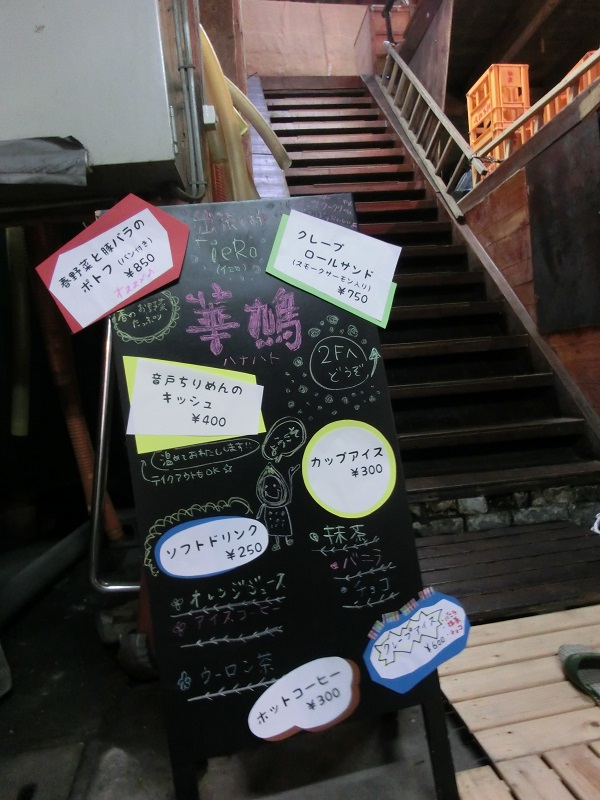 春野菜と豚バラの
ポトフ(パン付き)
¥850
オススメ♪
春のお野菜
たっぷり
クレープ
ロールサンド
(スモークサーモン入り)
¥750
華鳩
ハナハト
2Fへ
どうぞ
音戸ちりめんの
キッシュ
¥400
温めておわたしします!!
テイクアウトもOK☆
ようこそ
カップアイス
¥300
抹茶
バニラ
チョコ
ソフトドリンク
¥250
オレンジジュース
アイスコーヒー
ウーロン茶
クレープアイス
¥600
バニラ
抹茶
チョコ
ホットコーヒー
¥300